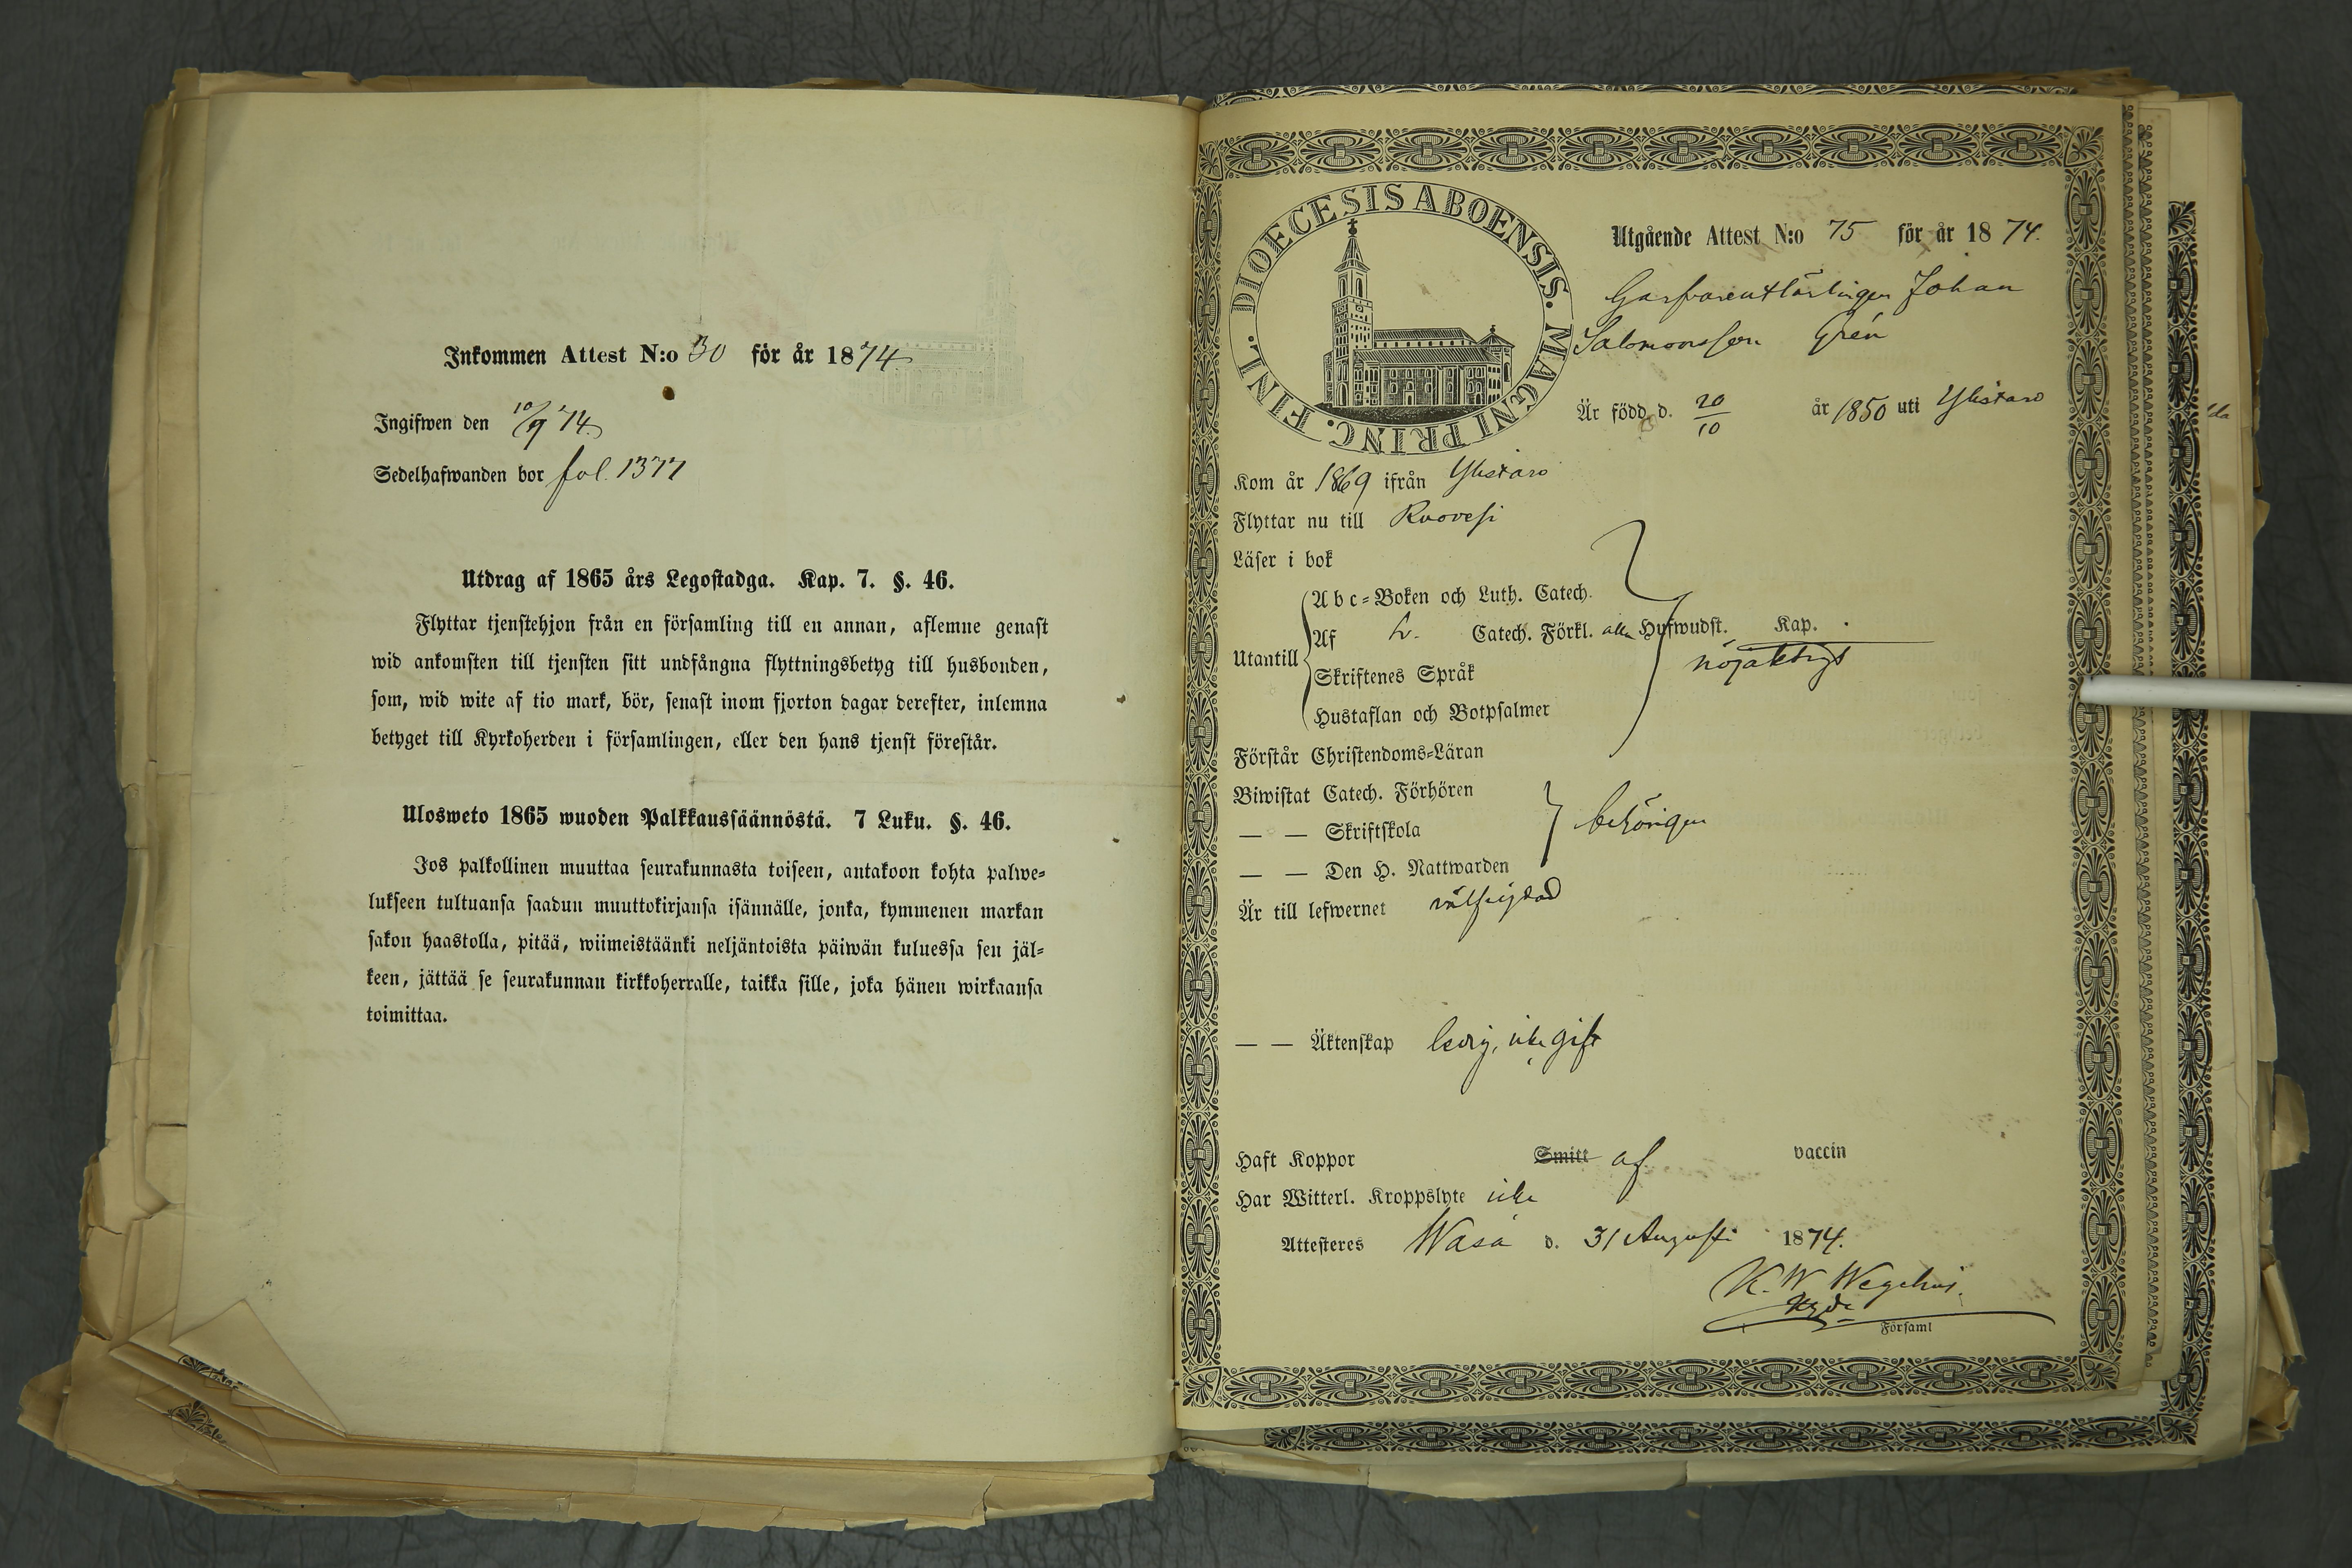 Inkommen Attest N:o 30 för år 1874
Ingifwen den 10/9 74.
Sedelhafwanden bor fol. 1377
Utdrag af 1865 års Legostadga. Kap. 7. §. 46.
Flyttar tjenstehjon från en församling till en annan, aflemne genast
wid ankomsten till tjensten sitt undfångna flyttningsbetyg till husbonden,
som, wid wite af tio mark, bör, senast inom fjorton dagar derefter, inlemna
betyget till Kyrkoherden i församlingen, eller den hans tjenst förestår.
Ulosweto 1865 wuoden Palkkaussäännöstä. 7 Luku. §. 46.
Jos palkollinen muuttaa seurakunnasta toiseen, antakoon kohta palwe-
lukseen tultuansa saadun muuttokirjansa isännälle, jonka, kymmenen markan
sakon haastolla, pitää, wiimeistäänki neljäntoista päiwän kuluessa sen jäl-
keen, jättää se seurakunnan kirkkoherralle, taikka sille, joka hänen wirkaansa
toimittaa.
DIOECESIS ABOENSIS. MAGNI PRINC. FINL.
Utgående Attest N:o 75 för år 1874.
Garfvarelärlingen Johan
Salomonsson Grén
Är född d. 20/10 år 1850 uti Ylistaro
Kom år 1869 ifrån Ylistaro
Flyttar nu till Ruovesi
Läser i bok
Abc-Boken och Luth. Catech.
Utantill Af Catech. Förkl. alla Hufwudst. Kap.
nöjaktigt
Skriftenes Språk
Hustaflan och Botpsalmer
Förstår Christendoms-Läran
Biwistat Catech. Förhören
— — Skriftskola behörigen
— — Den H. Nattwarden
Är till lefwernet välfrejdad
— — Äktenskap ledig, icke gift
Haft Koppor Smitt af vaccin
Har Witterl. Kroppslyte icke
Attesteres Wasa d. 31 Augusti 1874.
K. W. Wegelius.
Församl